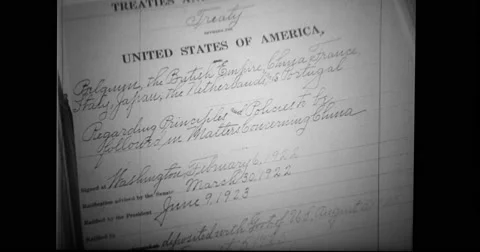 TREATIES
Treaty
BETWEEN THE
UNITED STATES OF AMERICA,
Belgium, the British Empire, China, France,
Italy, Japan, the Netherlands & Portugal
Regarding Principles and Policies to be
followed in Matters Concerning China
Signed at Washington, February 6, 1922
Ratification advised by the Senate March 30, 1922
Ratified by the President June 9, 1923
Ratified by
deposited with Govt of U.S., August